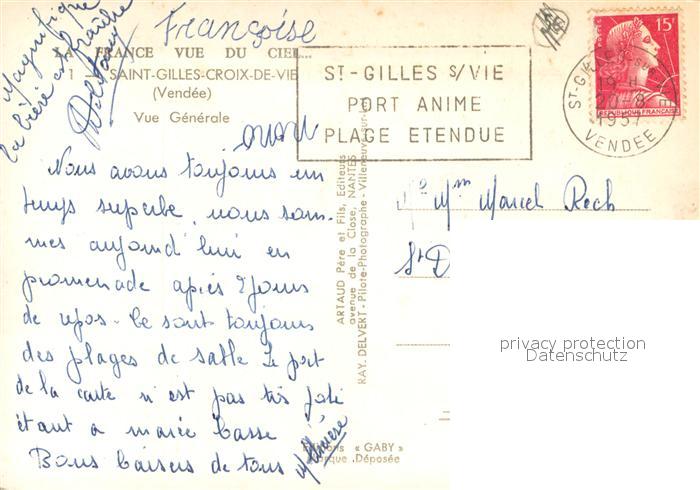 Françoise
Magnifique
la bière est fraîche
LA FRANCE VUE DU CIEL...
1 - SAINT-GILLES-CROIX-DE-VIE
(Vendée)
Vue Générale
ST-GILLES S/VIE
PORT ANIME
PLAGE ETENDUE
ST-GILLES
20-8
1957
VENDEE
POSTES
15F
REPUBLIQUE FRANCAISE
Nous avons toujours un
temps superbe, nous som-
mes aujourd'hui en
promenade après 2 jours
de repos. Ce sont toujours
des plages de sable le port
de la carte n'est pas très joli
étant à marée basse
Bons baisers de tous
M Thérèse
ARTAUD Père et Fils, Editeurs
avenue de la Close, NANTES
RAY. DELVERT - Pilote-Photographe - Villeneuve-sur-
Editions « GABY »
Marque Déposée
Mr Mme Marcel Roch
St D
privacy protection
Datenschutz